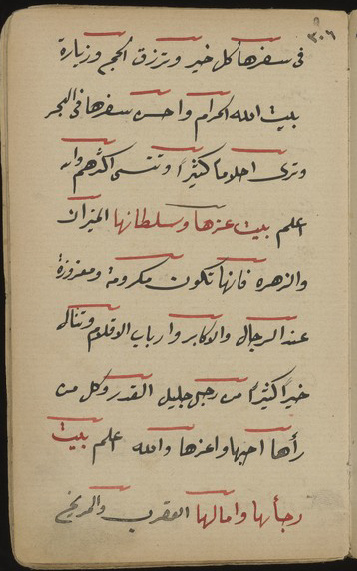 ٣٠٦
في سفرها كل خير وترزق الحج وزيارة
بيت الله الحرام واحسن سفرها في البحر
وترى احلاما كثيرا وتنسى اكثرهم والله
اعلم بيت عزها وسلطانها الميزان
والزهره فانها تكون مكرومة ومعزوزة
عند الرجال والاكابر وارباب الاقلام وتنال
خيرا كثيرا من رجل جليل القدر وكل من
رأها احبها واعزها والله اعلم بيت
رجأئها وامالها العقرب والمريخ